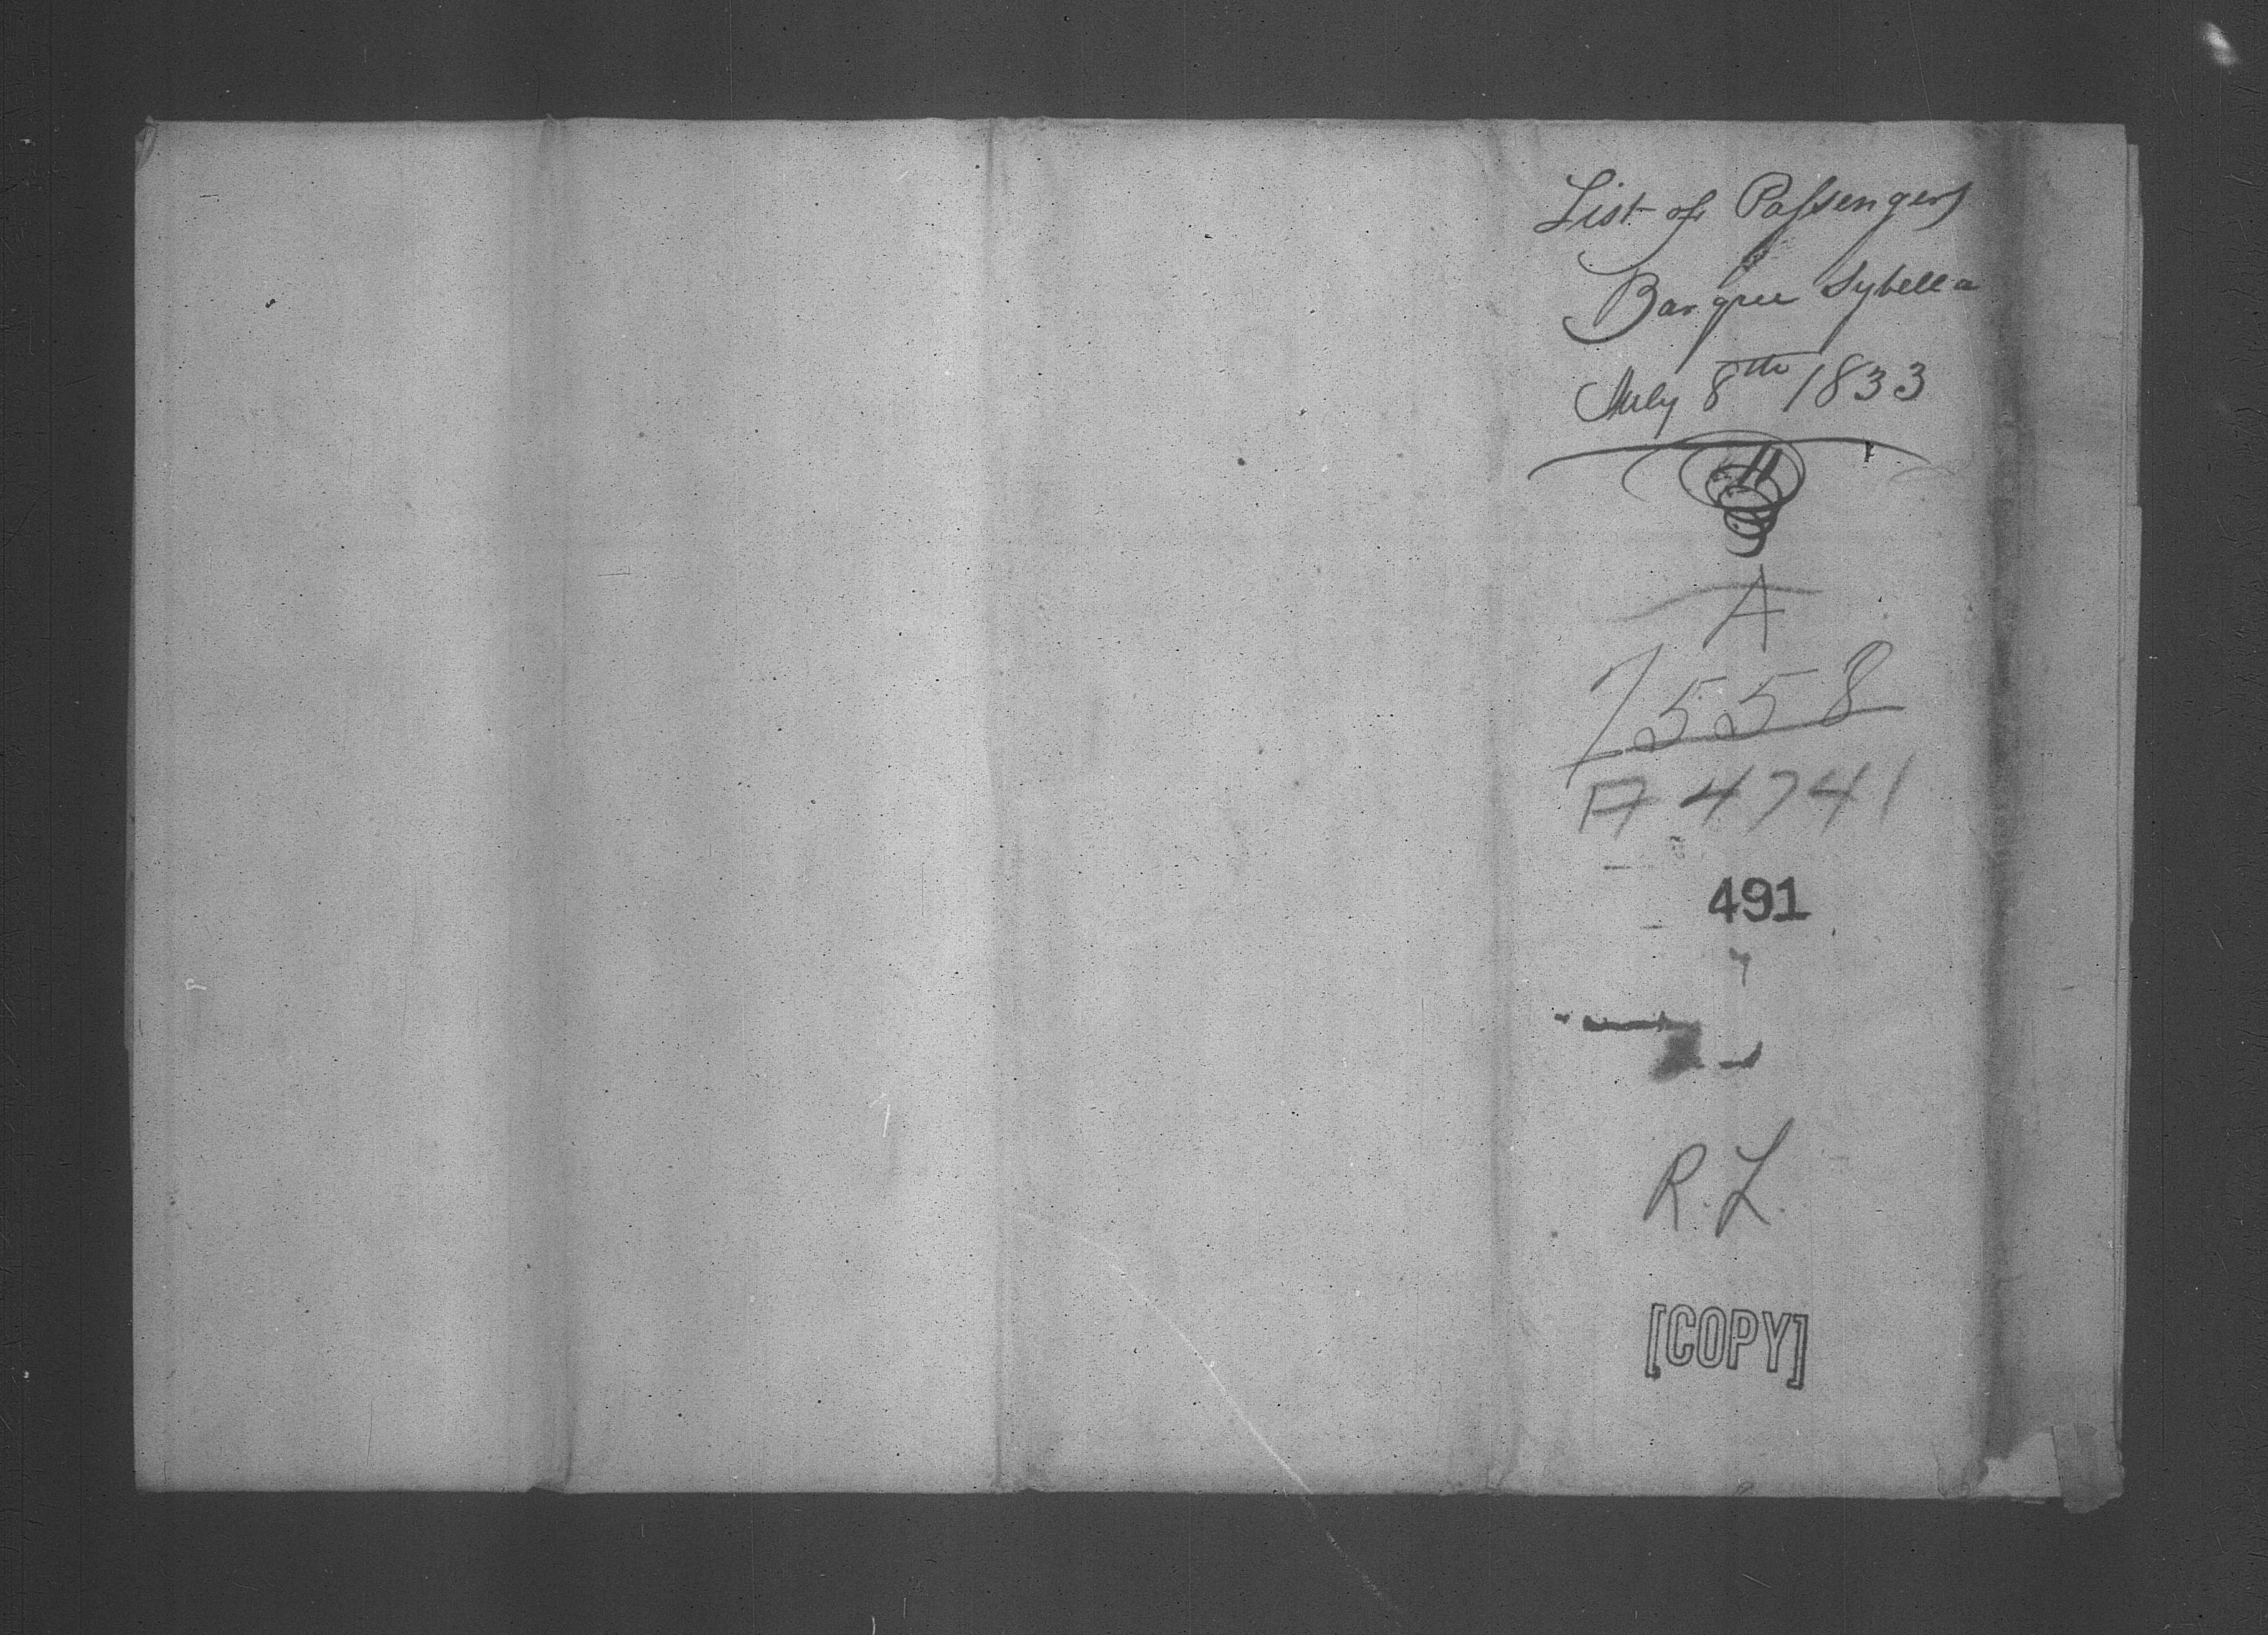 List of Passengers
Barque Sybella
July 8th 1833
A
7558
A 4741
491
R.L.
[COPY]